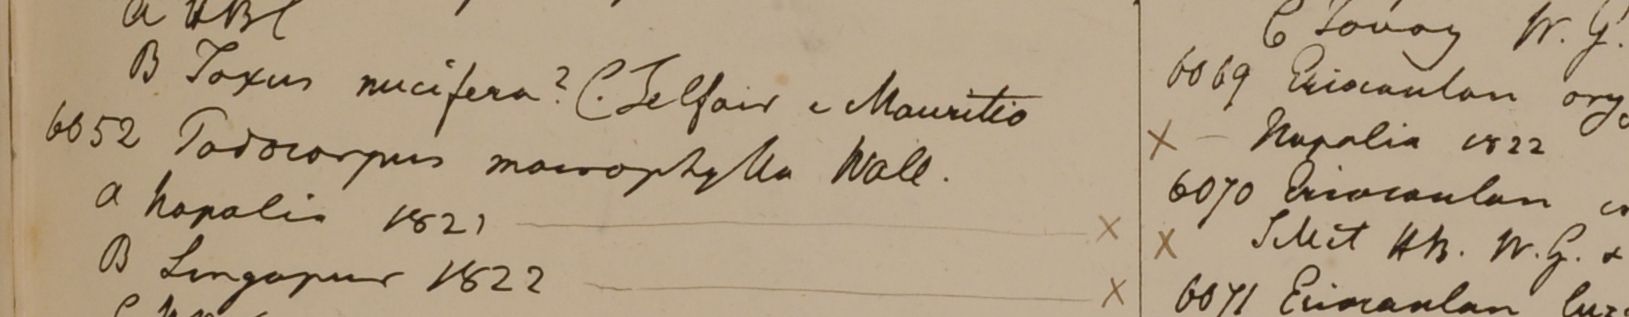 a HBC
B Taxus nucifera? C. Telfair e Mauritio
6052 Podocarpus macrophylla Wall.
a Napalia 1821 x
B Singapur 1822 x
C Tavoy W. G.
6069 Eriocaulon ory
x - Napalia 1822
6070 Eriocaulon
x Silhet HB. W. G. &
6071 Eriocaulon luz